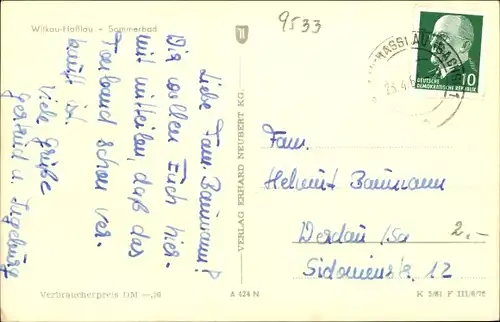 Wilkau-Haßlau - Sommerbad
9533
Liebe Fam. Baumann!
Wir wollen Euch hier-
mit mitteilen, daß das
Tonband schon ver-
kauft ist.
Viele Grüße
Gertrud u. Ingeburg
VERLAG ERHARD NEUBERT KG.
HASSLAU (SACHS)
10
DEUTSCHE
DEMOKRATISCHE REPUBLIK
Fam.
Helmut Baumann
Werdau /Sa
2.-
Sidonienstr. 12
Verbraucherpreis DM —,20
A 424 N
K 5/61 F III/6/75